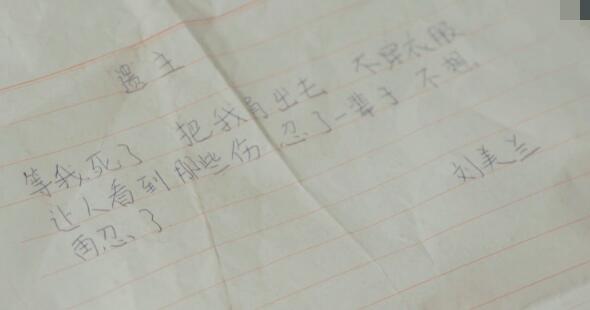 遗主
等我死了 把我出去 不穿衣服
让人看到那些伤 忍了一辈子 不想
再忍了
刘美兰